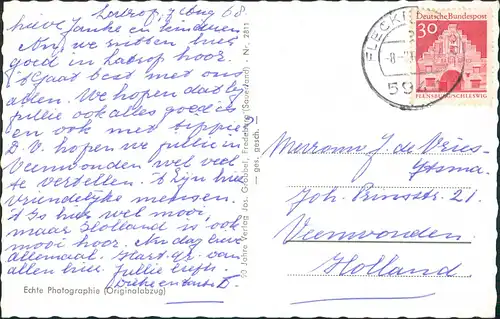 Latrop, 7 Aug 68.
Lieve Janke en kinderen
Nu, we zitten hier
goed in Latrop hoor.
't Gaat best met ons
allen. We hopen dat bij
jullie ook alles goed is
en ook met Sippie
D.V. hopen we jullie in
Veenwouden wel veel
te vertellen. 't Zijn hier
vriendelijke mensen.
't Is hier wel mooi,
maar Holland is ook
mooi hoor. Nu dag lieve
allemaal. Hart. gr. van
allen hier. Jullie
Echte Photographie (Originalabzug)
90 Jahre Verlag Jos. Grobbel, Fredeburg (Sauerland) - Nr. 2811
— ges. gesch. —
FLECK
594
Deutsche Bundespost
30
FLENSBURG-SCHLESWIG
Mevrouw J. de Vries-
Ytsma.
Joh. Prinsstr. 21.
Veenwouden.
Holland.